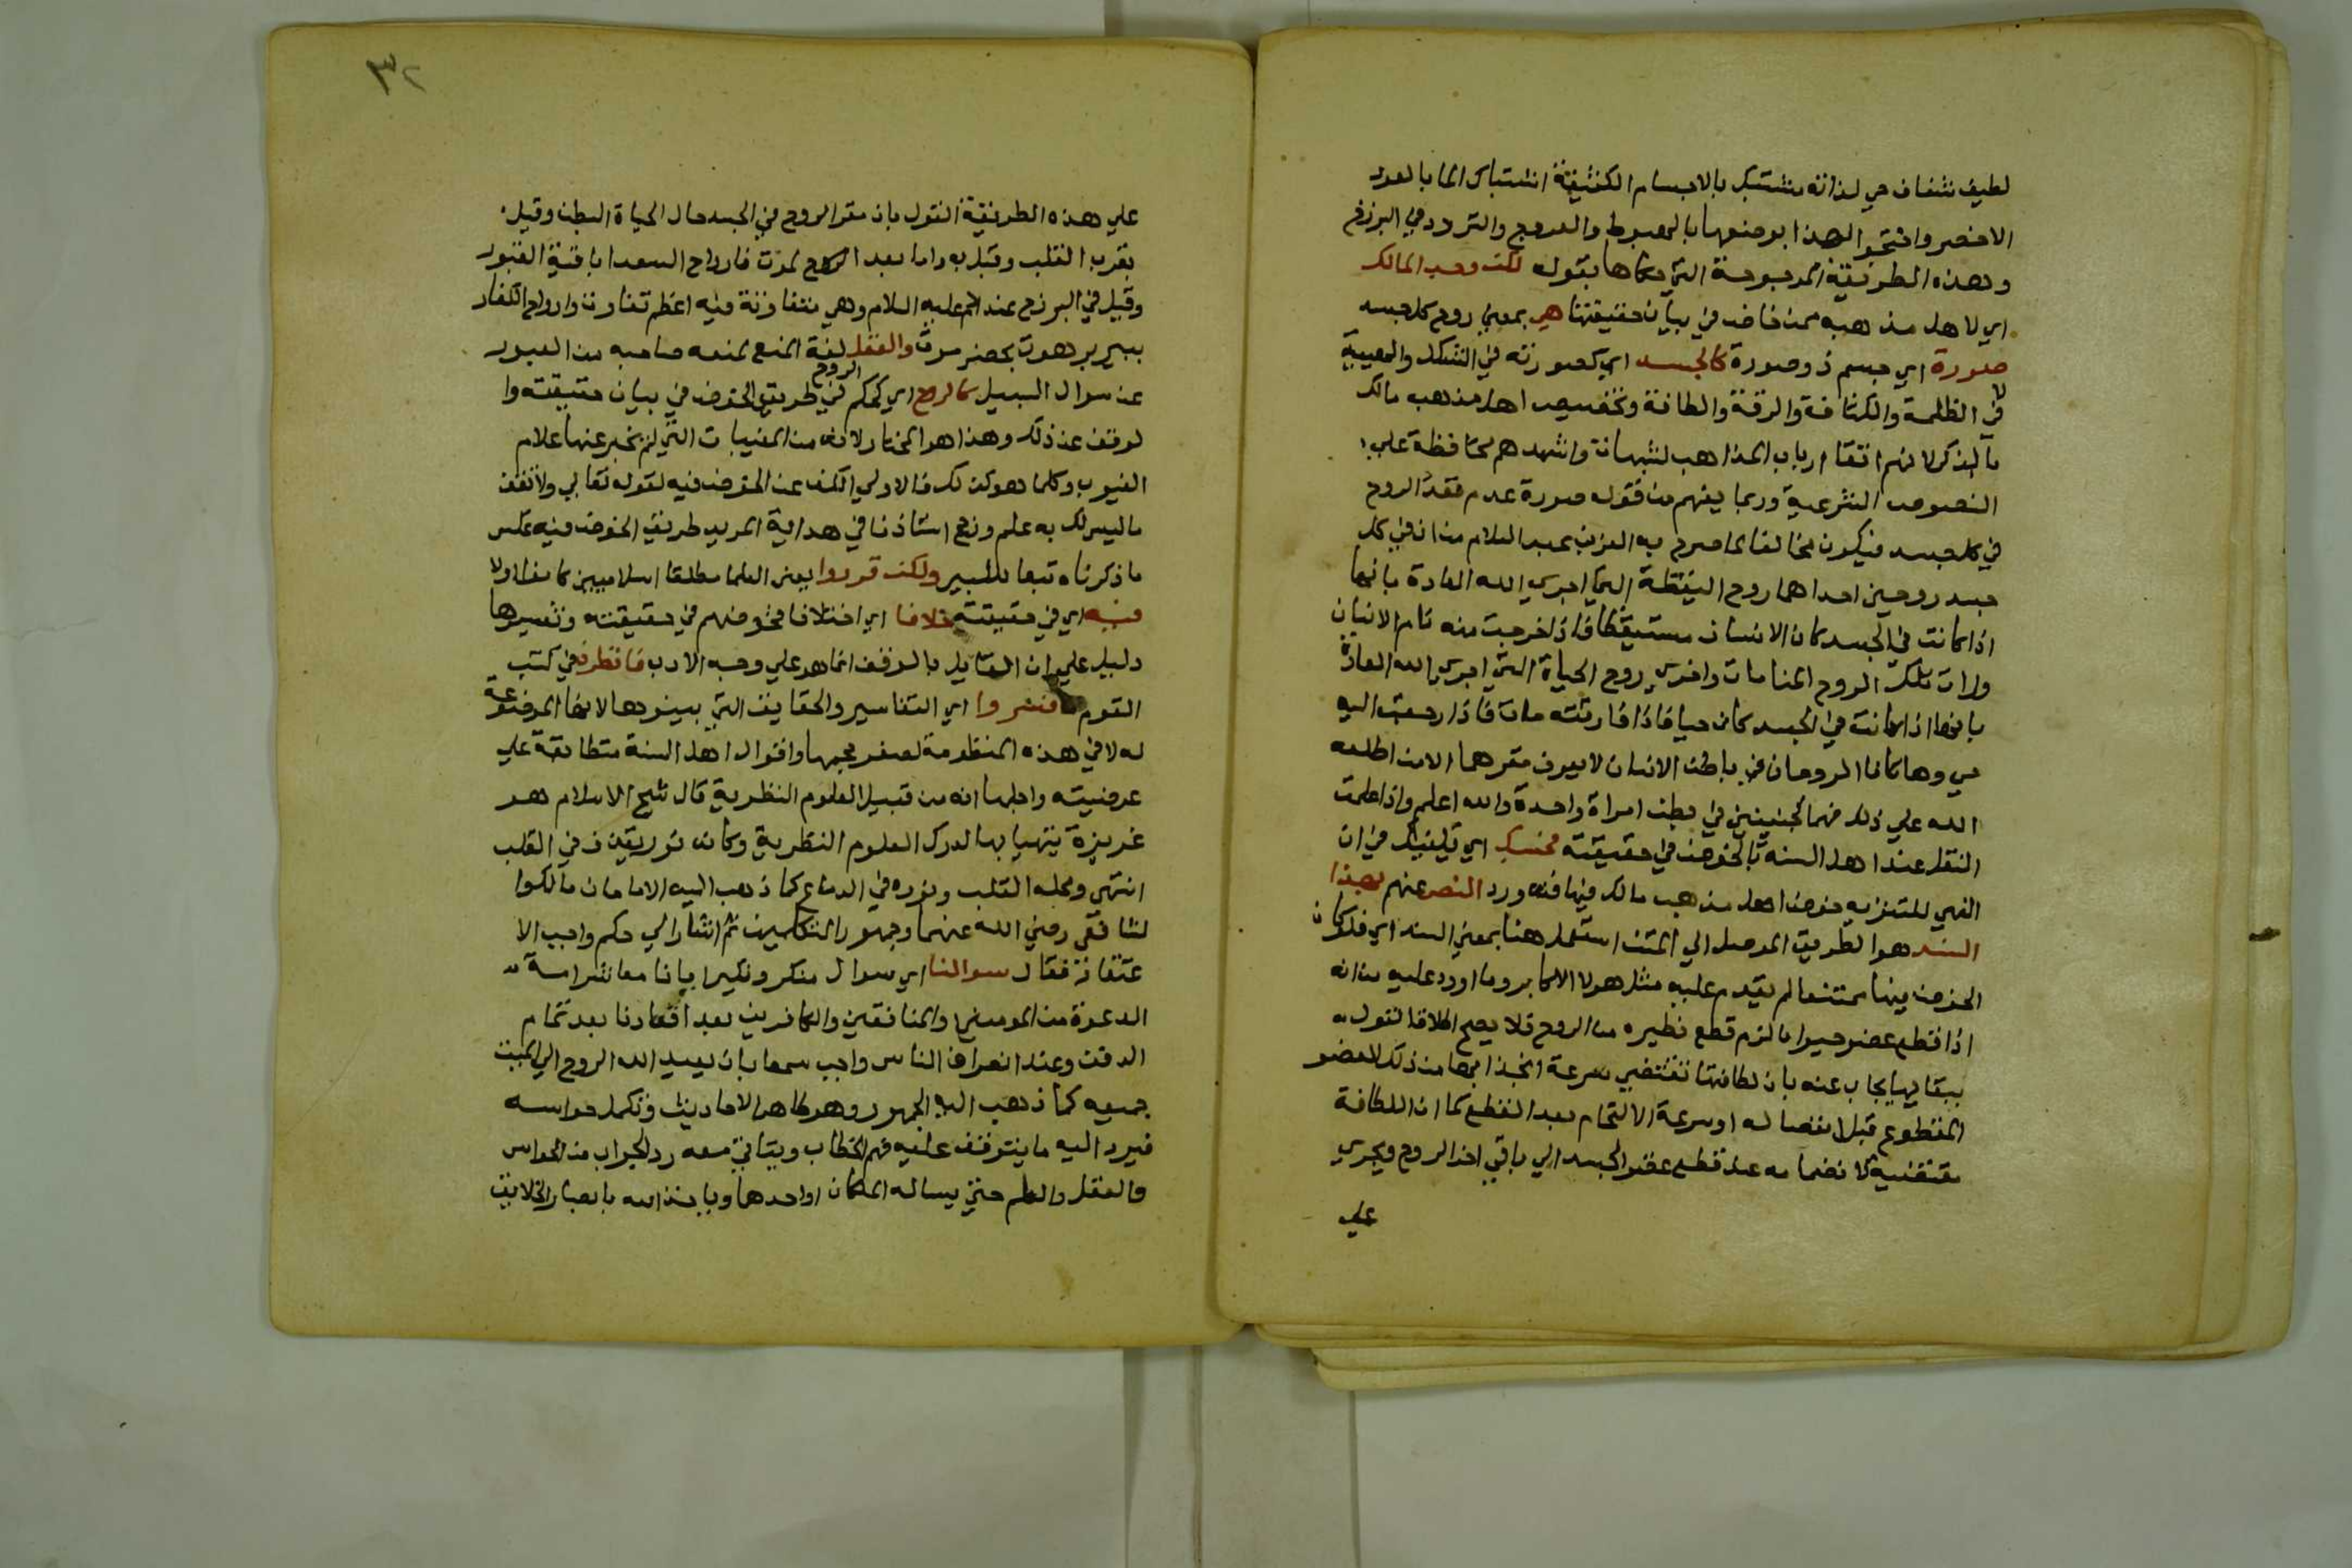 لطيف شفاف حي لذاته مشتبك بالاجسام الكثيفة اشتباك الما بالعود
الاخضر واحتجوا لهذا بوصفها بالهبوط والعروج والتردد في البرزخ
وهذه الطريقة المرجوحة التي حكاها بقوله لكن وجد المالك
اي لاهل مذهبه ممن خاض في بيان حقيقتها هي بمعني روح كل جسد
صورة اي جسم ذو صورة كالجسد اي كصورته في الشكل والهيية
لا في الظلمة والكثافة والرقة واللطافة وتخصيص اهل مذهب مالك
بالذكر لانهم اتقا ارباب المذاهب لشبهات واشهدهم محافظة علي
النصوص الشرعية وربما يفهم من قوله صورة عدم تعدد الروح
في كل جسد فيكون مخالفا لما صرح به العز بن عبد السلام من ان في كل
جسد روحين احداهما روح اليقظة التي اجري الله العادة بانها
اذا كانت في الجسد كان الانسان مستيقظا فاذا خرجت منه نام الانسان
ورات تلك الروح المنامات واخري روح الحياة التي اجري الله العادة
بانها اذا كانت في الجسد كان حيا فاذا فارقته مات فاذا رجعت اليه
حي وهاتان الروحان في باطن الانسان لا يعرف مقرهما الا من اطلعه
الله علي ذلك فهما كجنينين في بطن امراة واحدة والله اعلم واذا علمت
النقل عند اهل السنة بالخوض في حقيقته فحسبك اي يكفيك في ان
النهي للتنزيه خوض اهل مذهب مالك فيها فقد ورد النص عنهم بهذا
السند هو الطريق الموصل الي المتن استعمل هنا بمعني السند اي فلو كان
الخوض فيها ممتنعا لم يقدم عليه مثل هولا الاكابر وما اورد عليه من انه
اذا قطع عضو حيوان لزم قطع نظيره من الروح فلا يصح اطلاق القول
ببقايها يجاب عنه بان لطافتها تقتضي سرعة انجذابها من ذلك العضو
المقطوع قبل انفصاله او سرعة الالتحام بعد القطع كما ان اللطافة
مقتضية لانضمامه عند قطع عضو الجسد الي باقي اخر الروح ويجري
علي
٣٢
علي هذه الطريقة القول بان مقر الروح في الجسد حال الحياة البطن وقيل
بقرب القلب وقيل به واما بعد الموت فارواح السعدا بافنية القبور
وقيل في البرزخ عند ادم عليه السلام وهي متفاوتة فيه اعظم تفاوت وارواح الكفار
ببير برهوت بحضرموت والعقل لغة المنع لمنعه صاحبه من العبور
عن سوال السبيل كالروح اي كحكم الروح في طريق الخوض في بيان حقيقته وا
لوقف عن ذلك وهذا هو المختار لانه من المغيبات التي لم يخبر عنها علام
الغيوب وكلما هو كذلك فالاولي الكف عن الخوض فيه لقوله تعالي ولا تقف
ما ليس لك به علم ورجح استاذنا في هداية المريد طريق الخوض فيه عكس
ما ذكرناه تبعا للكبير ولكن قرروا يعني العلما مطلقا اسلاميين كانوا اولا
فيه اي في حقيقته خلافا اي اختلافا فخوضهم في حقيقته وتفسيرها
دليل علي ان القايل بالوقف انما هو علي وجه الادب فانظرن في كتب
القوم ما فسروا اي التفاسير والحقايق التي بينوها لانها الموضوعة
له لا في هذه المنظومة لصغر حجمها واقوال اهل السنة متطابقة علي
عرضيته واجلها انه من قبيل العلوم النظرية قال شيخ الاسلام هو
غريزة يتهيا بها لدرك العلوم النظرية وكانه نور يقذف في القلب
انتهي ومحله القلب ونوره في الدماغ كما ذهب اليه الامامان مالك وا
لشافعي رضي الله عنهما وجمهور المتكلمين ثم اشار الي حكم واجب الا
عتقاد فقال سوالنا اي سوال منكر ونكير ايانا معاشر امة
الدعوة من المومنين والمنافقين والكافرين بعد اقعادنا بعد تمام
الدفن وعند انصراف الناس واجب سمعا بان يعيد الله الروح الي الميت
جميعه كما ذهب اليه الجمهور وهو ظاهر الاحاديث وتكمل حواسه
فيرد اليه ما يتوقف عليه فهم الخطاب ويتاتي معه رد الجواب من الحواس
والعقل والعلم حتي يساله الملكان او احدهما وياخذ الله بابصار الخلايق